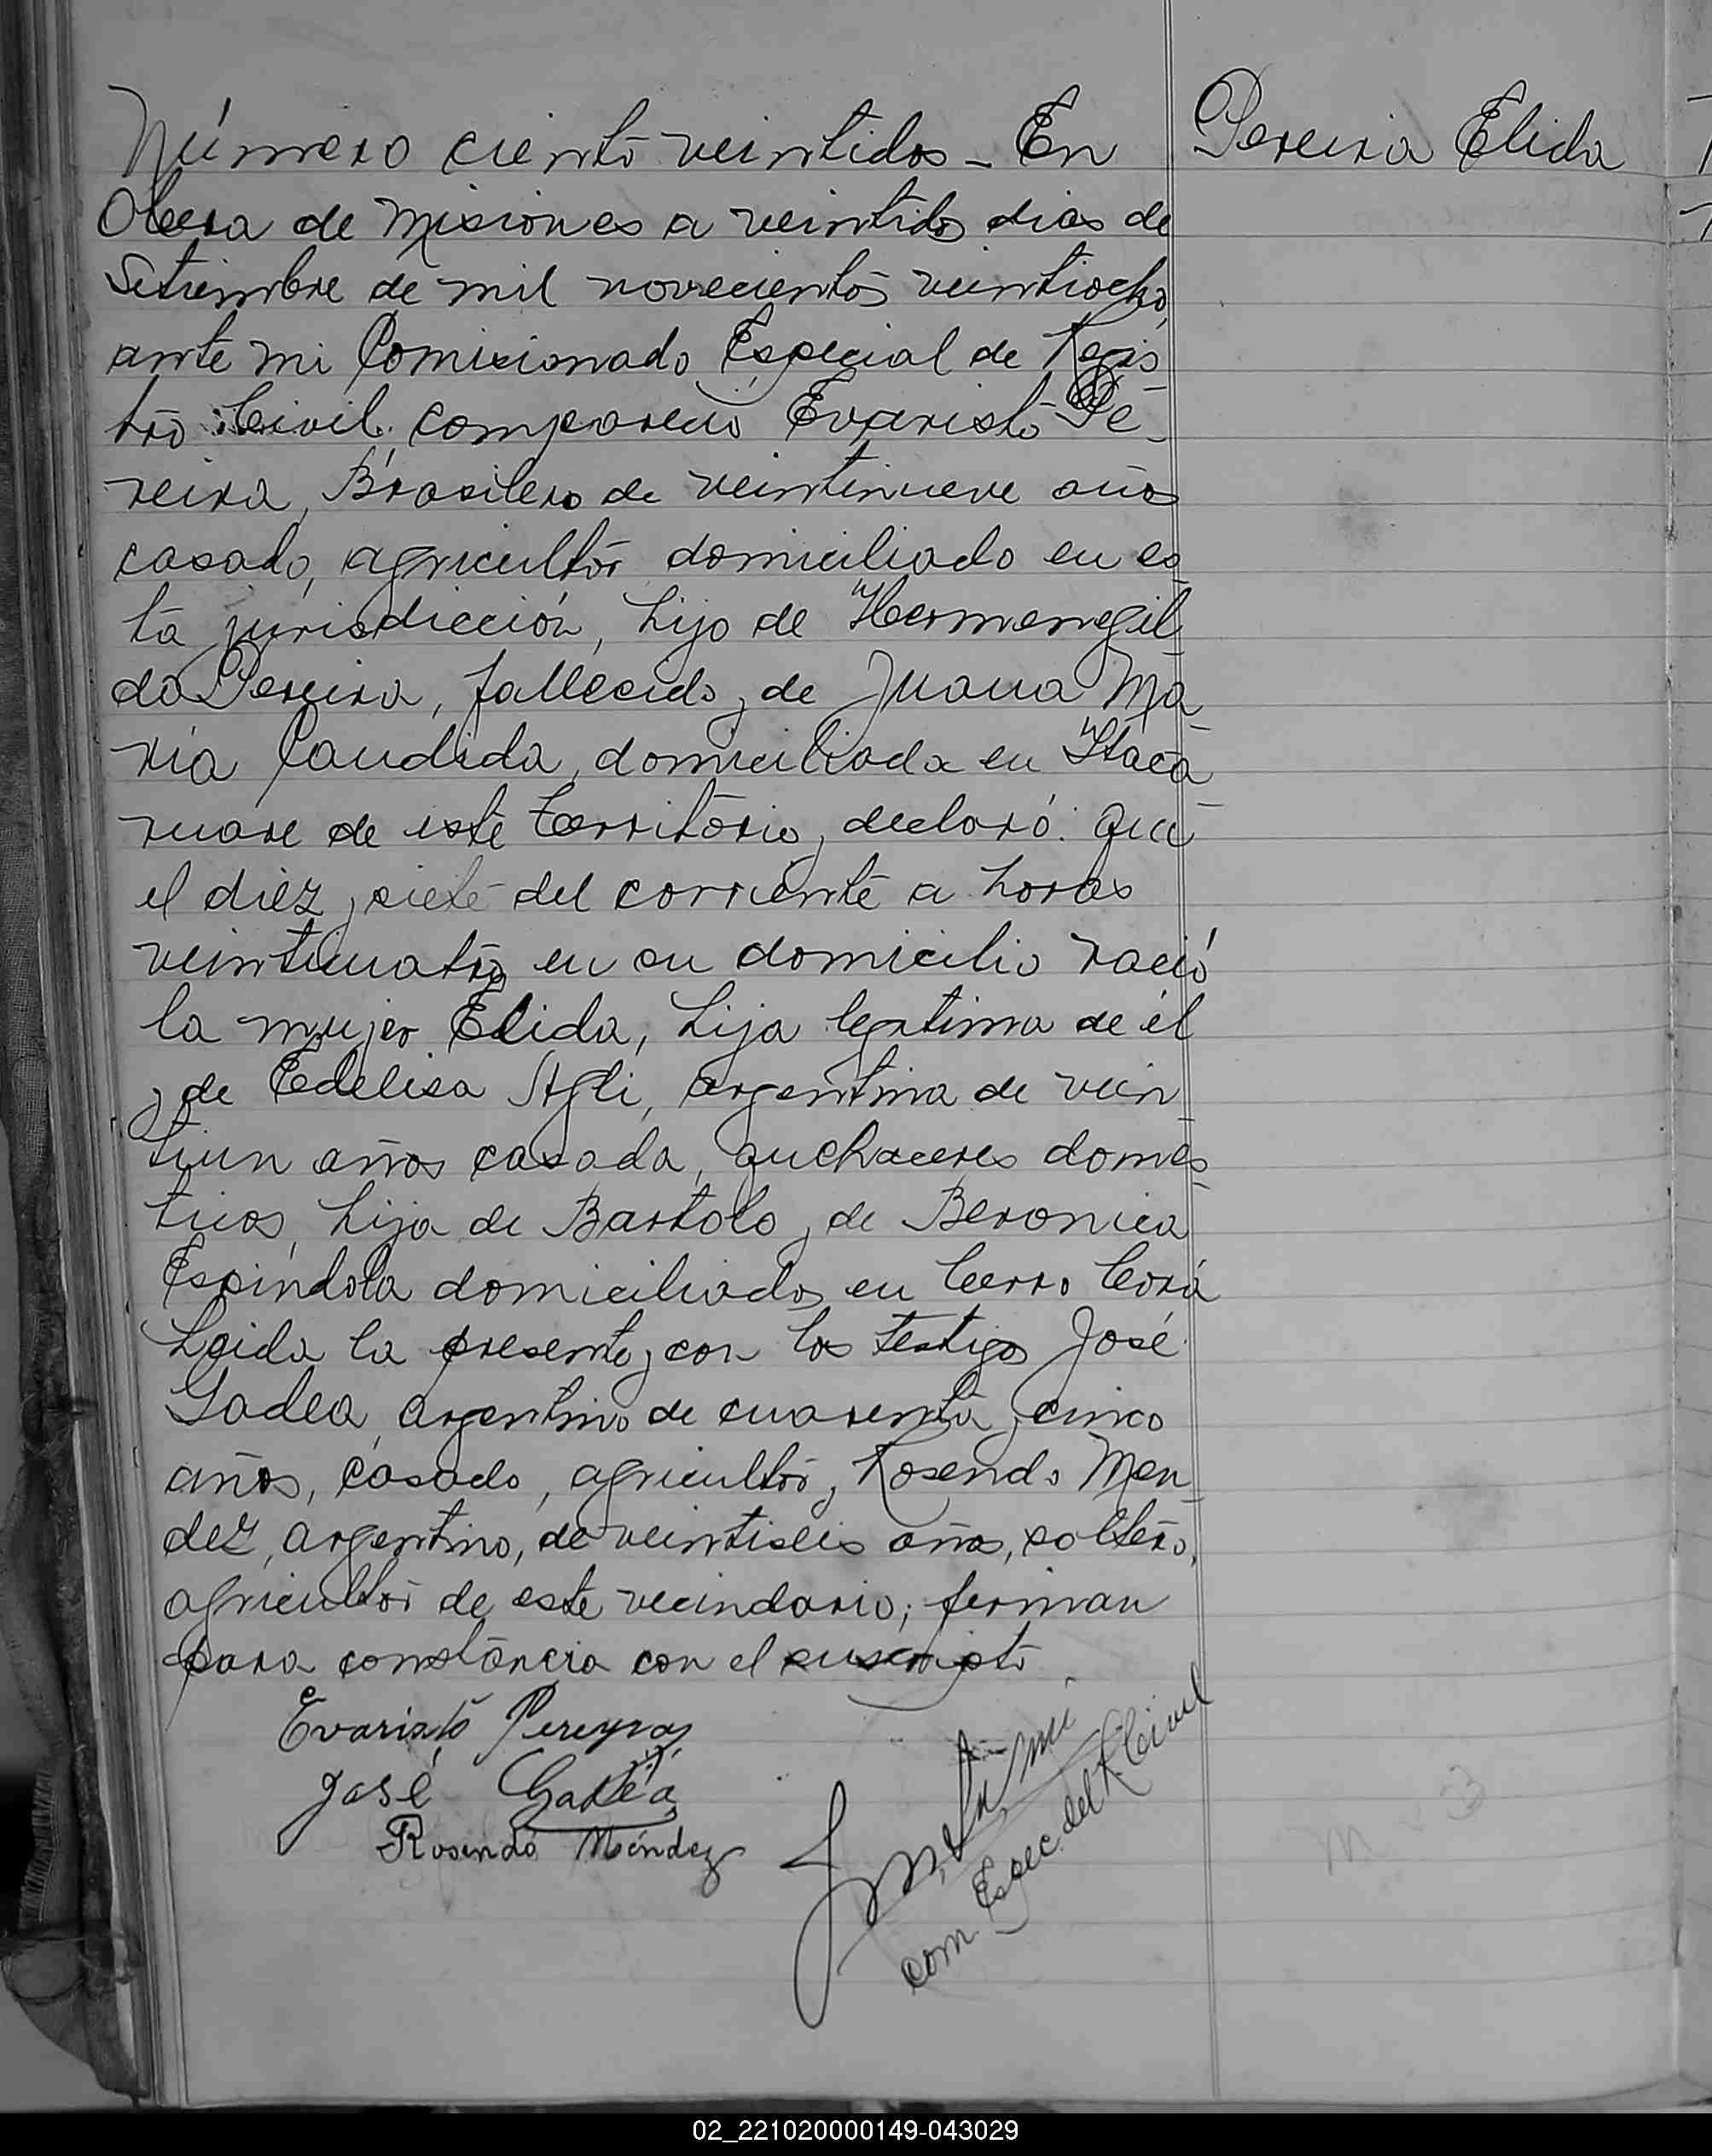 Número ciento veintidos - En
Pereira Elida
Obera de Misiones a veintidos dias de
Setiembre de mil novecientos veintiocho,
ante mi Comisionado Especial de Regis
tro Civil comparecio Evaristo Pe-
reira, Brasilero de veintinueve años
casado, agricultor domiciliado en es
ta jurisdicción, hijo de Hermenegil
do Pereira, fallecido y de Juana Ma
ria Candida, domiciliada en Itaca
ruare de este territorio, declaró: que
el diez y siete del corriente a horas
veinticuatro en su domicilio nació
la mujer Elida, hija legitima de él
y de Edelisa Agli, argentina de vein
tiun años casada, quehaceres domes
ticos, hija de Bartolo y de Beronica
Espíndola domiciliados en Cerro Corá
Leida la presente y con los testigos José
Gadea, argentino de cuarenta y cinco
años, casado, agricultor y Rosendo Men
dez, argentino, de veintiseis años, soltero,
agricultor de este vecindario; firman
para constancia con el suscripto
Evaristo Pereyra
José Gadea
Rosendo Méndez
Ante mi
Com. Espec. del R. Civil
M - 3
02_221020000149-043029